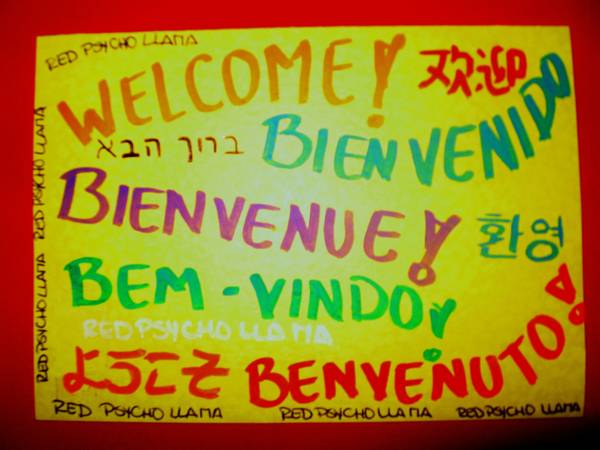 RED PSYCHO LLAMA
WELCOME!
欢迎
ברוך הבא
BIENVENIDO
BIENVENUE!
환영
BEM-VINDO!
RED PSYCHO LLAMA
ようこそ
BENVENUTO!
RED PSYCHO LLAMA
RED PSYCHO LLAMA
RED PSYCHO LLAMA
RED PSYCHO LLAMA
RED PSYCHO LLAMA